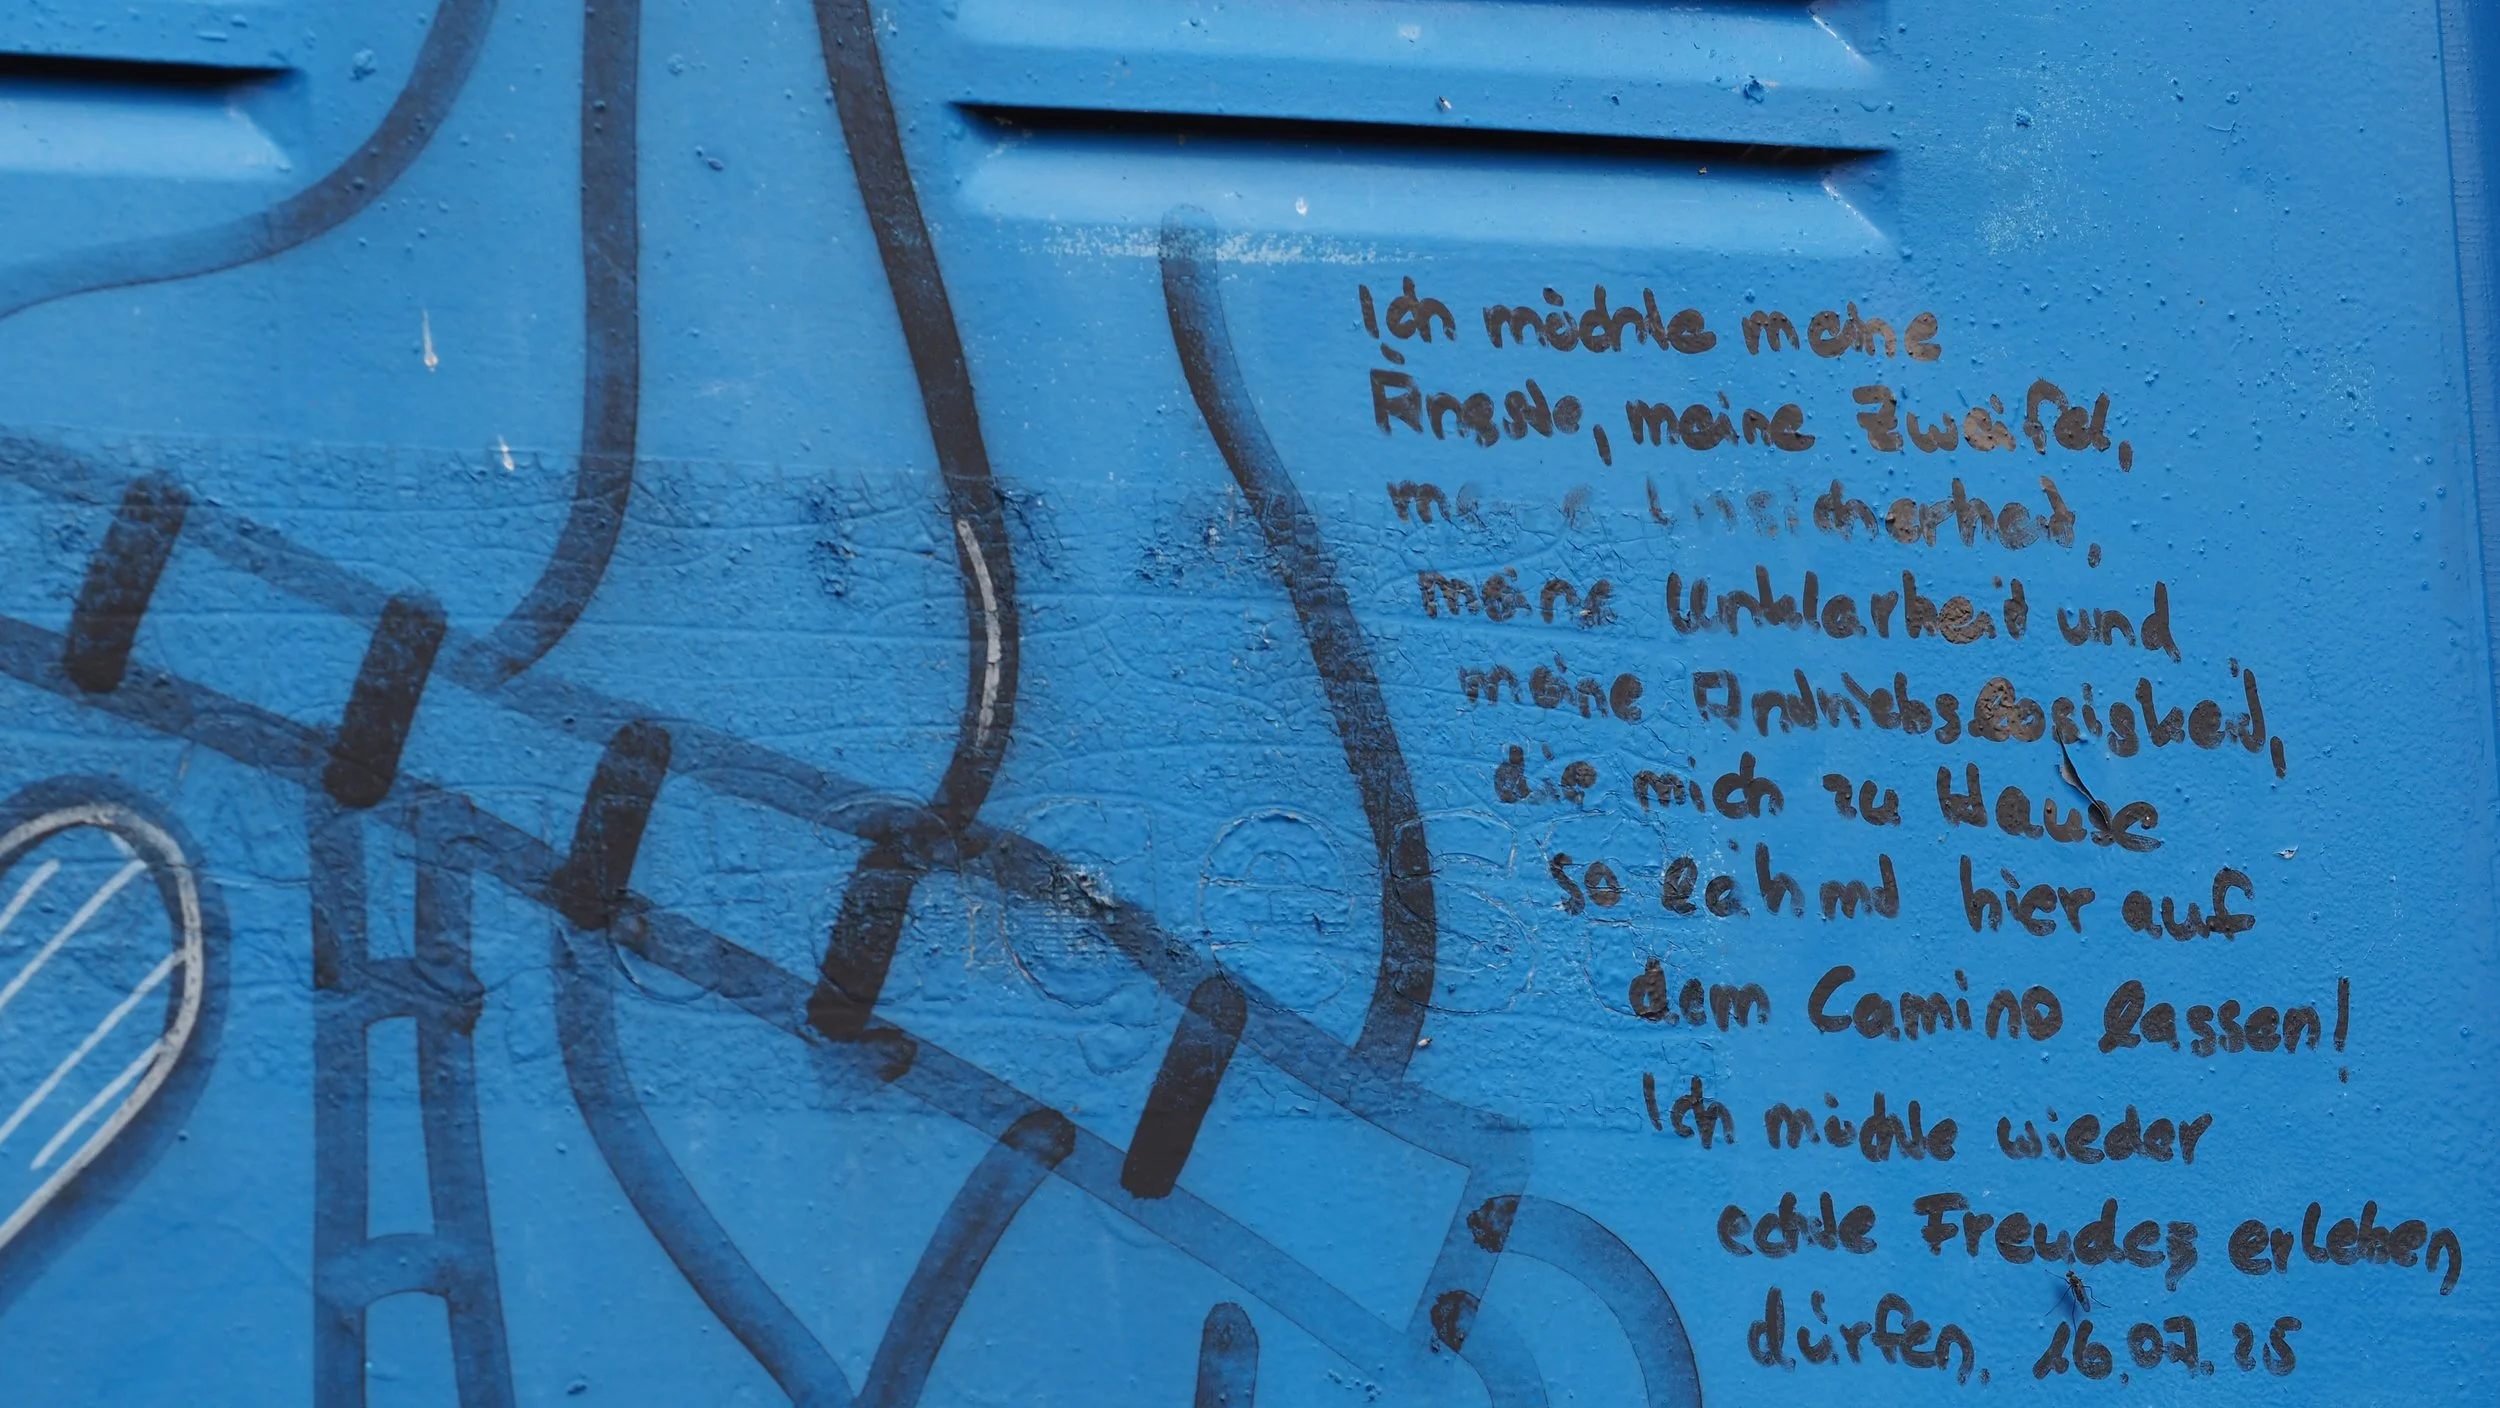 Ich möchte meine
Ängste, meine Zweifel,
meine Unsicherheit,
meine Unklarheit und
meine Andriebslosigkeit,
die mich zu Hause
so lähmt hier auf
dem Camino lassen!
Ich möchte wieder
echte Freude erleben
dürfen. 26.07.25